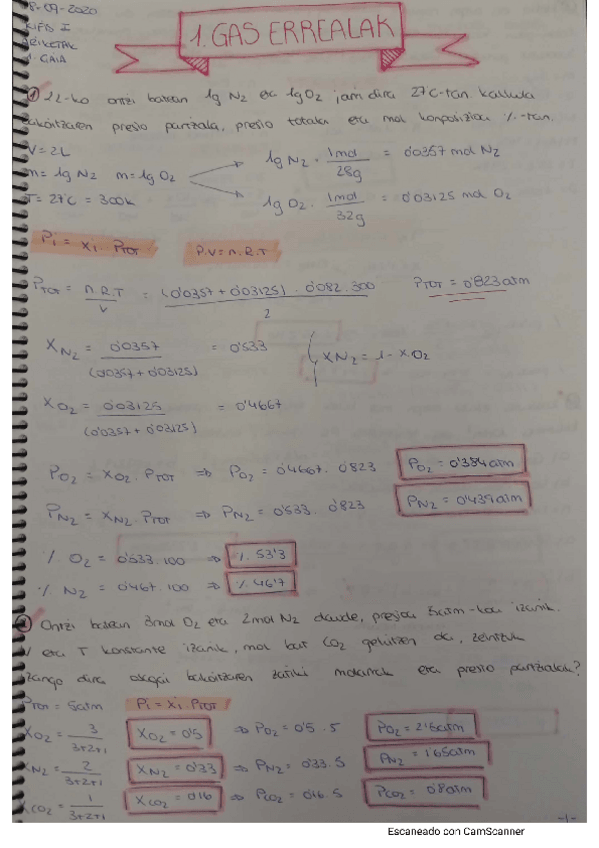 8-09-2020
KIFIS I
ARIKETAK
1. GAIA
1. GAS ERREALAK
① 2L-ko ontzi batean 1g N₂ eta 1g O₂ jarri dira 27°C-tan. Kalkula
bakoitzaren presio partziala, presio totala eta mol konposizioa %-tan.
V = 2L
m = 1g N₂ m = 1g O₂
T = 27°C = 300K
1g N₂ · 1mol / 28g = 0'0357 mol N₂
1g O₂ · 1mol / 32g = 0'03125 mol O₂
Pi = Xi · PTOT P.V = n.R.T
PTOT = n.R.T / V = (0'0357 + 0'03125) · 0'082 · 300 / 2 PTOT = 0'823 atm
XN₂ = 0'0357 / (0'0357 + 0'03125) = 0'533 XN₂ = 1 - XO₂
XO₂ = 0'03125 / (0'0357 + 0'03125) = 0'4667
PO₂ = XO₂ · PTOT ⇒ PO₂ = 0'4667 · 0'823 PO₂ = 0'384 atm
PN₂ = XN₂ · PTOT ⇒ PN₂ = 0'533 · 0'823 PN₂ = 0'439 atm
% O₂ = 0'533 · 100 ⇒ % 53'3
% N₂ = 0'467 · 100 ⇒ % 46'7
② Ontzi batean 3mol O₂ eta 2mol N₂ daude, presioa 5atm-koa izanik.
V eta T konstante izanik, mol bat CO₂ gehitzen da, zeintzuk
izango dira osagai bakoitzaren zatiki molarrak eta presio partzialak?
PTOT = 5atm Pi = Xi · PTOT
XO₂ = 3 / 3+2+1 XO₂ = 0'5 ⇒ PO₂ = 0'5 · 5 PO₂ = 2'5atm
XN₂ = 2 / 3+2+1 XN₂ = 0'33 ⇒ PN₂ = 0'33 · 5 PN₂ = 1'65atm
XCO₂ = 1 / 3+2+1 XCO₂ = 0'16 ⇒ PCO₂ = 0'16 · 5 PCO₂ = 0'8atm
-1-
Escaneado con CamScanner